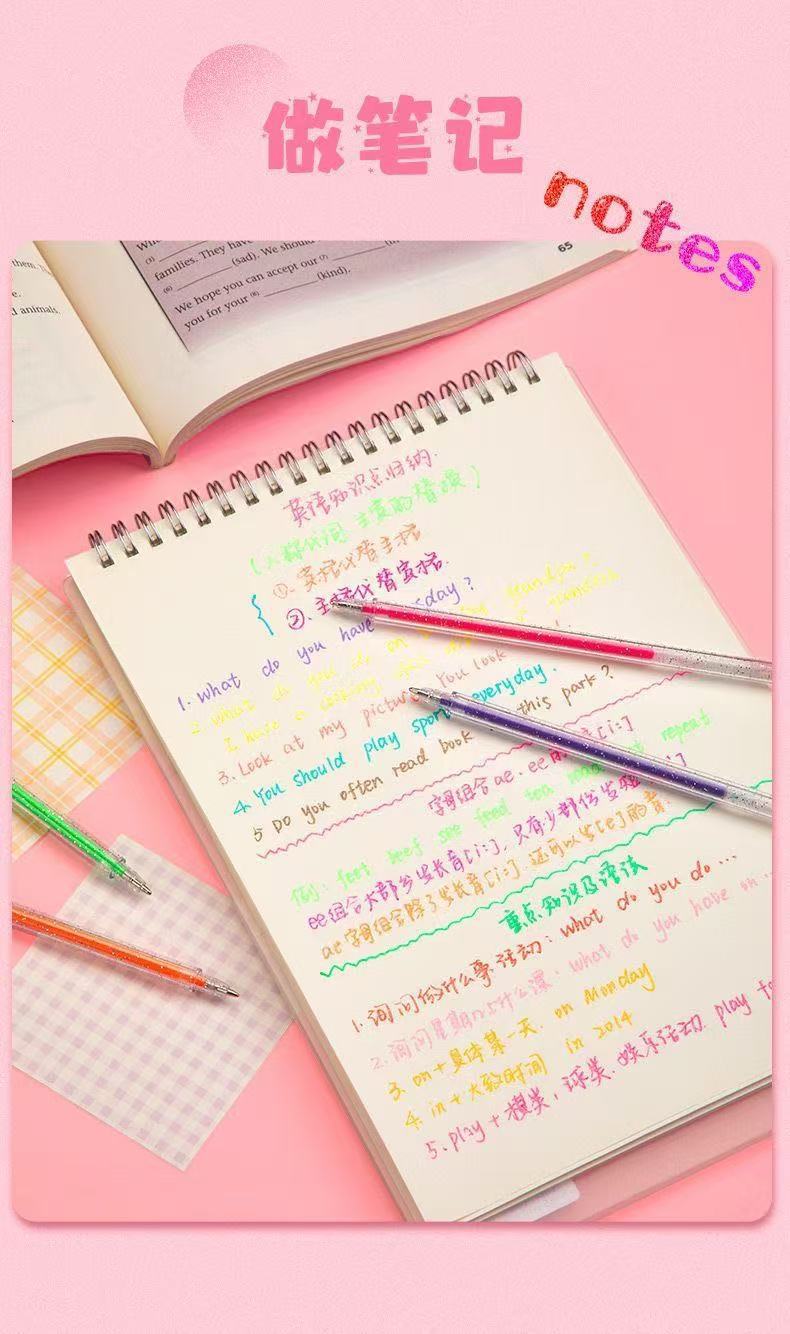 做笔记
notes
families. They have
(sad). We should
We hope you can accept our (7)
you for your (8) (kind).
65
animals.
英语知识点归纳
(人称代词 主宾的替换)
①. 宾格代替主格
②. 主格代替宾格.
1. What do you have day?
2. What do you do on grandpa?
I have a
3. Look at my picture You look
4. You should play sport everyday.
5 Do you often read book this park?
字母组合 ae. ee [i:]
例: feet beef see feed tea read repeat
ee组合大部分发长音[i:], 只有少部份发短
ae字母组合除了发长音[i:] 还可以发[e]的音.
重点知识及语法
1. 询问你什么事活动: what do you do ...
2. 询问星期几上什么课: what do you have on ...
3. on + 具体某一天. on Monday
4. in + 大致时间 in 2014
5. play + 棋类, 球类. 娱乐活动. play